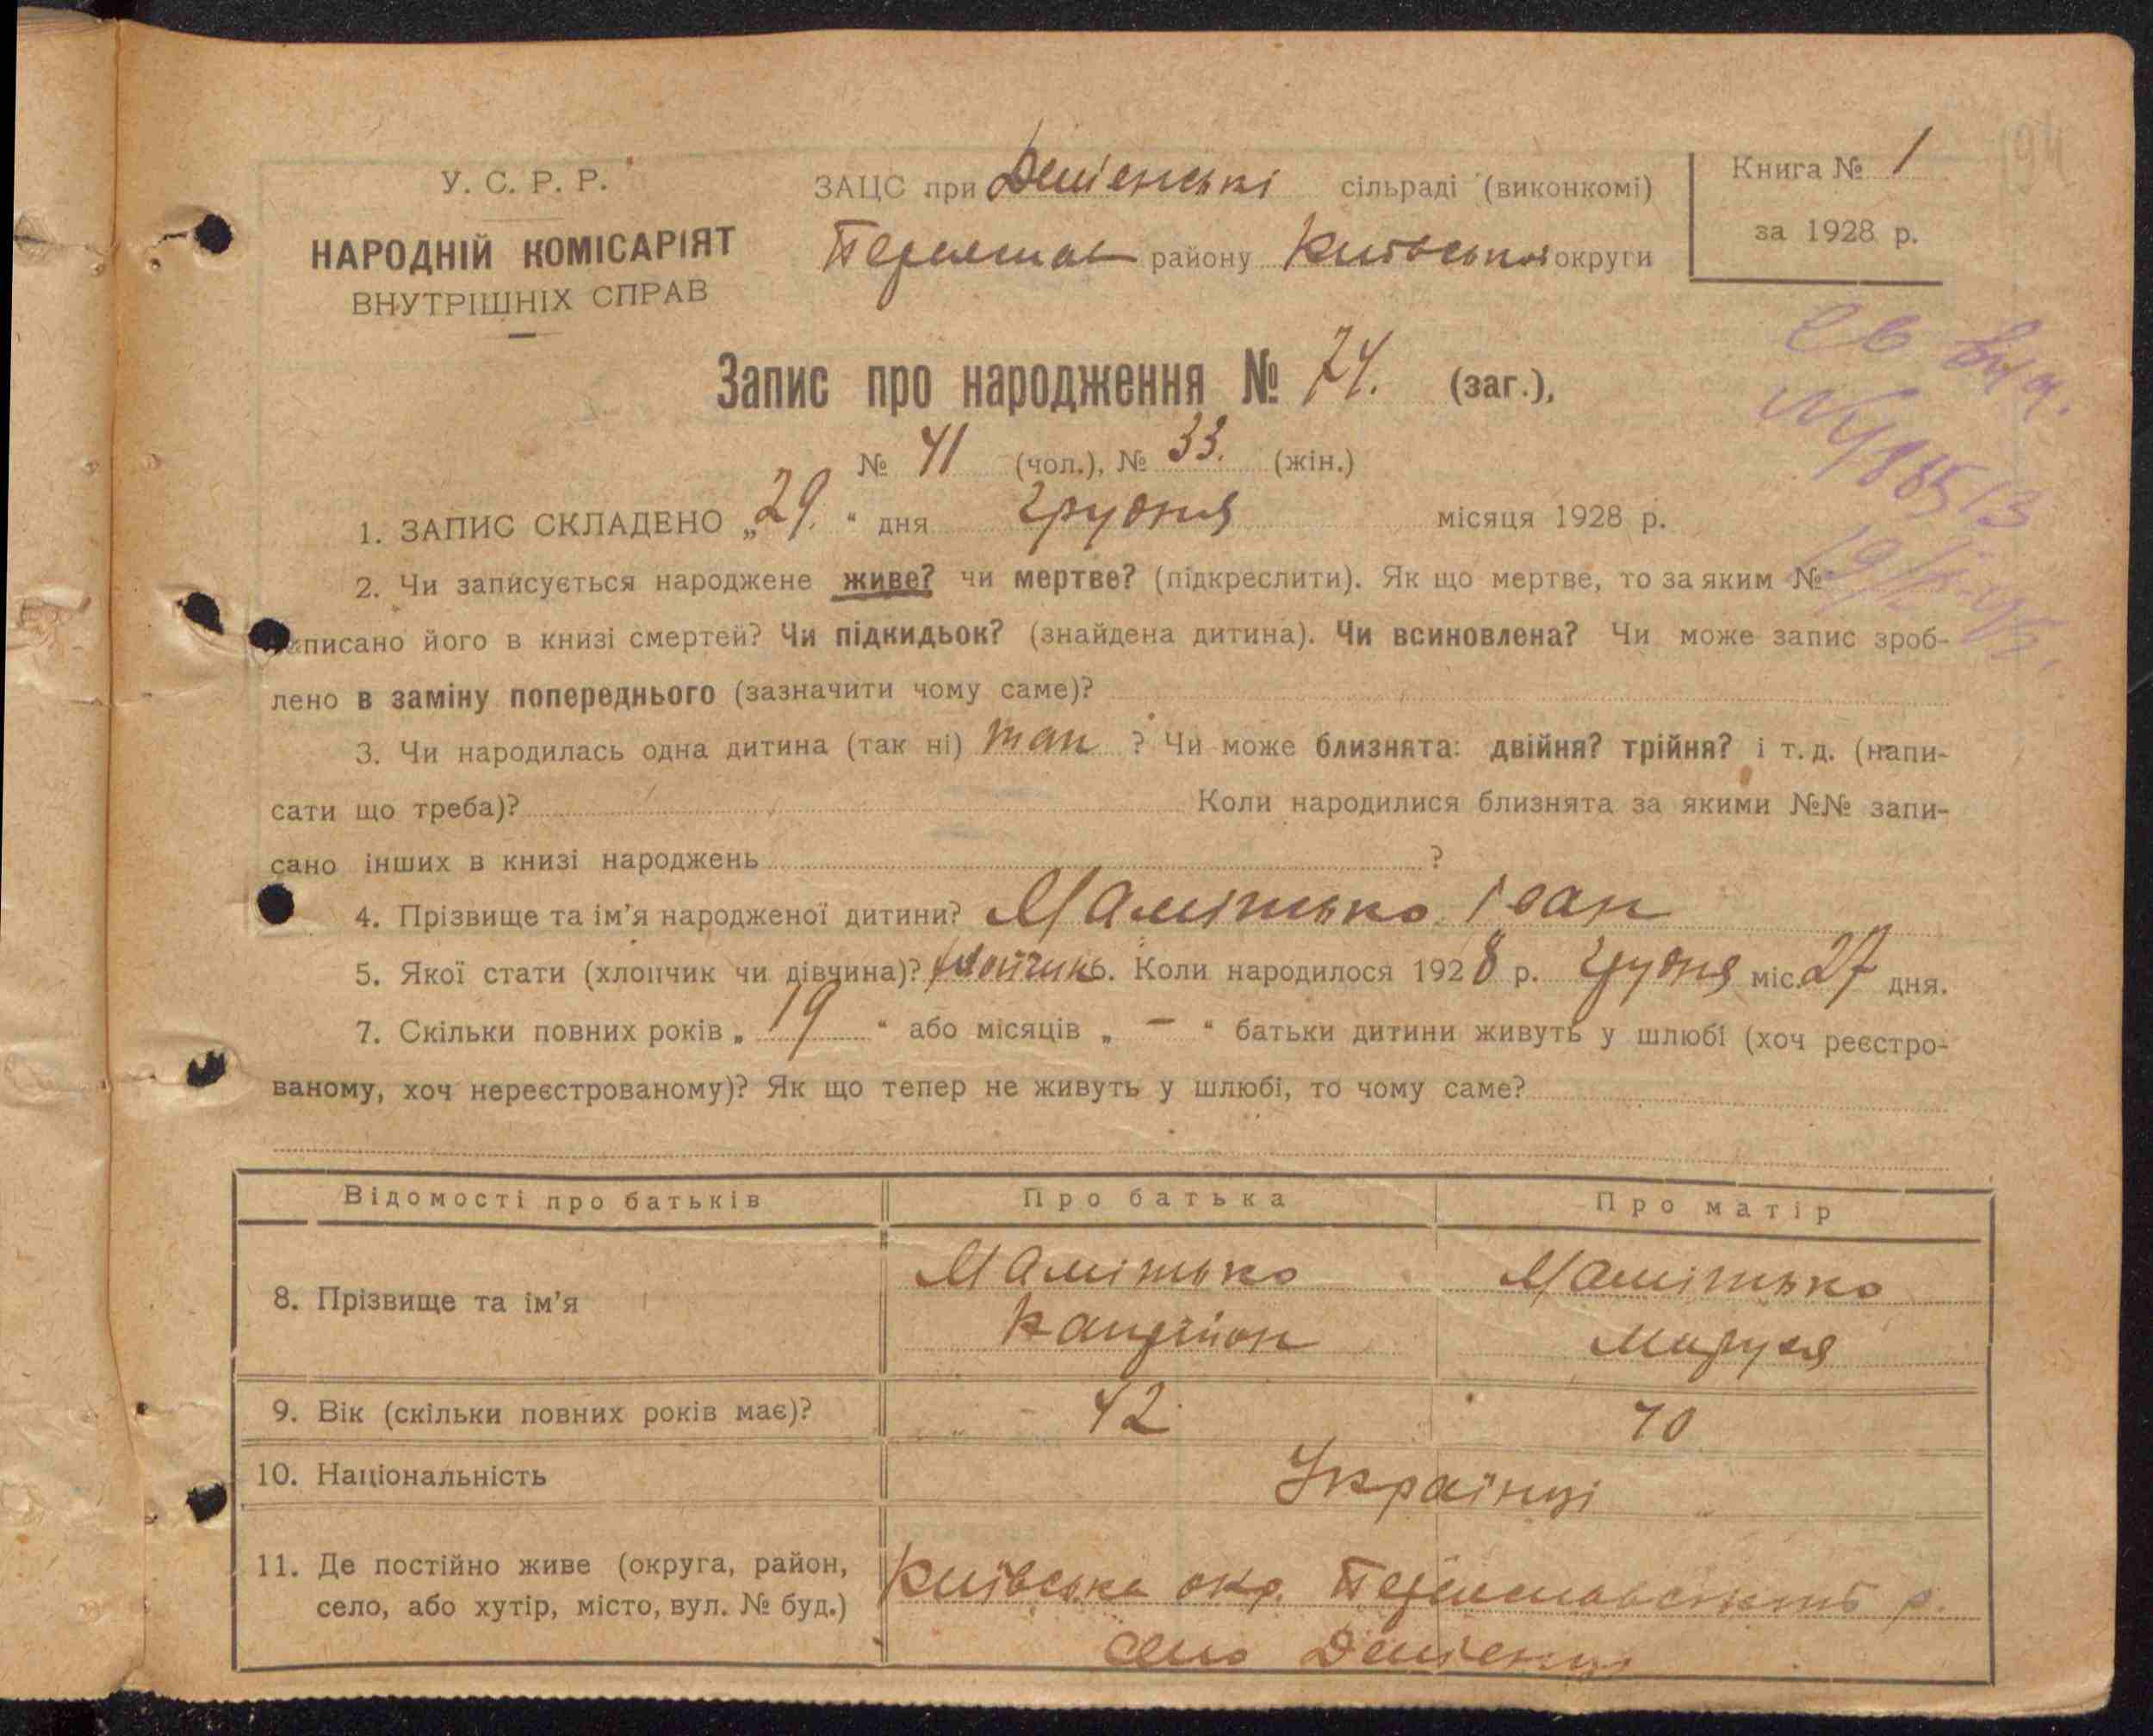 У. С. Р. Р.
НАРОДНІЙ КОМІСАРІЯТ
ВНУТРІШНІХ СПРАВ
ЗАЦС при Демʼенські сільраді (виконкомі)
району Київської округи
Книга № 1
за 1928 р.
Запис про народження № 74. (заг.),
№ 41 (чол.), № 33. (жін.)
1. ЗАПИС СКЛАДЕНО „29.“ дня грудня місяця 1928 р.
2. Чи записується народжене живе? чи мертве? (підкреслити). Як що мертве, то за яким №
записано його в книзі смертей? Чи підкидьок? (знайдена дитина). Чи всиновлена? Чи може запис зроб-
лено в заміну попереднього (зазначити чому саме)?
3. Чи народилась одна дитина (так ні) так ? Чи може близнята: двійня? трійня? і т. д. (напи-
сати що треба)? Коли народилися близнята за якими №№ запи-
сано інших в книзі народжень ?
4. Прізвище та ім’я народженої дитини? Мамітько Іван
5. Якої стати (хлопчик чи дівчина)? Коли народилося 1928 р. грудня міс. 27 дня.
7. Скільки повних років „ 19 “ або місяців „ – “ батьки дитини живуть у шлюбі (хоч реєстро-
ваному, хоч нереєстрованому)? Як що тепер не живуть у шлюбі, то чому саме?
Відомості про батьків Про батька Про матір
8. Прізвище та ім’я Мамітько Мамітько
Маруся
9. Вік (скільки повних років має)? 42 40
10. Національність Українці
11. Де постійно живе (округа, район, Київська окр. р.
село, або хутір, місто, вул. № буд.) село